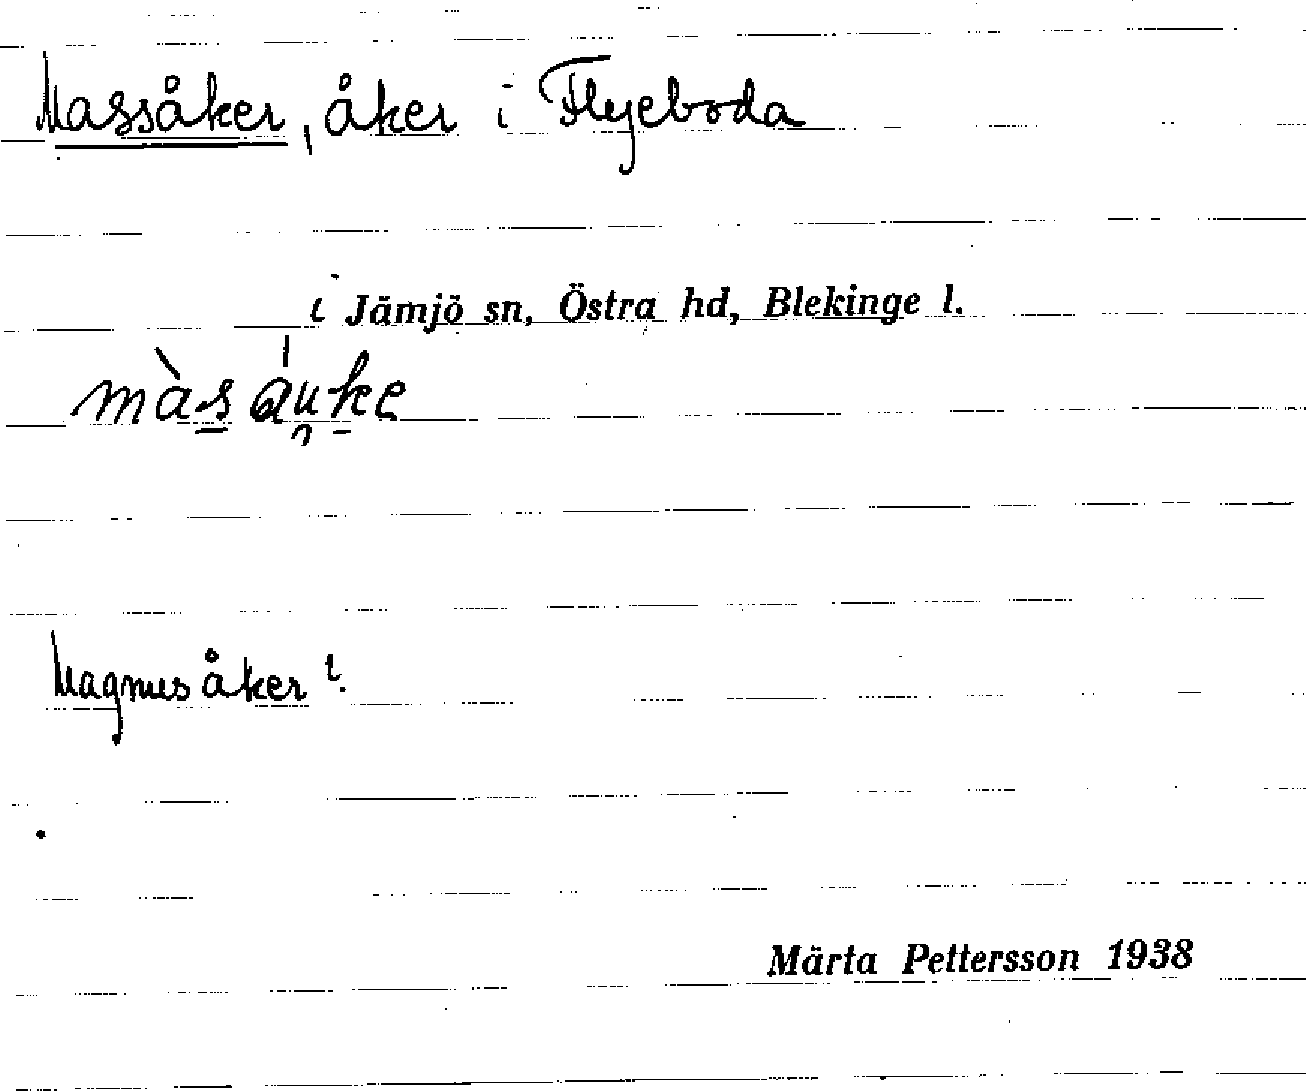 Massåker, åker i Flyeboda
i Jämjö sn, Östra hd, Blekinge l.
màs áu̯ke
Magnusåker?
Märta Pettersson 1938